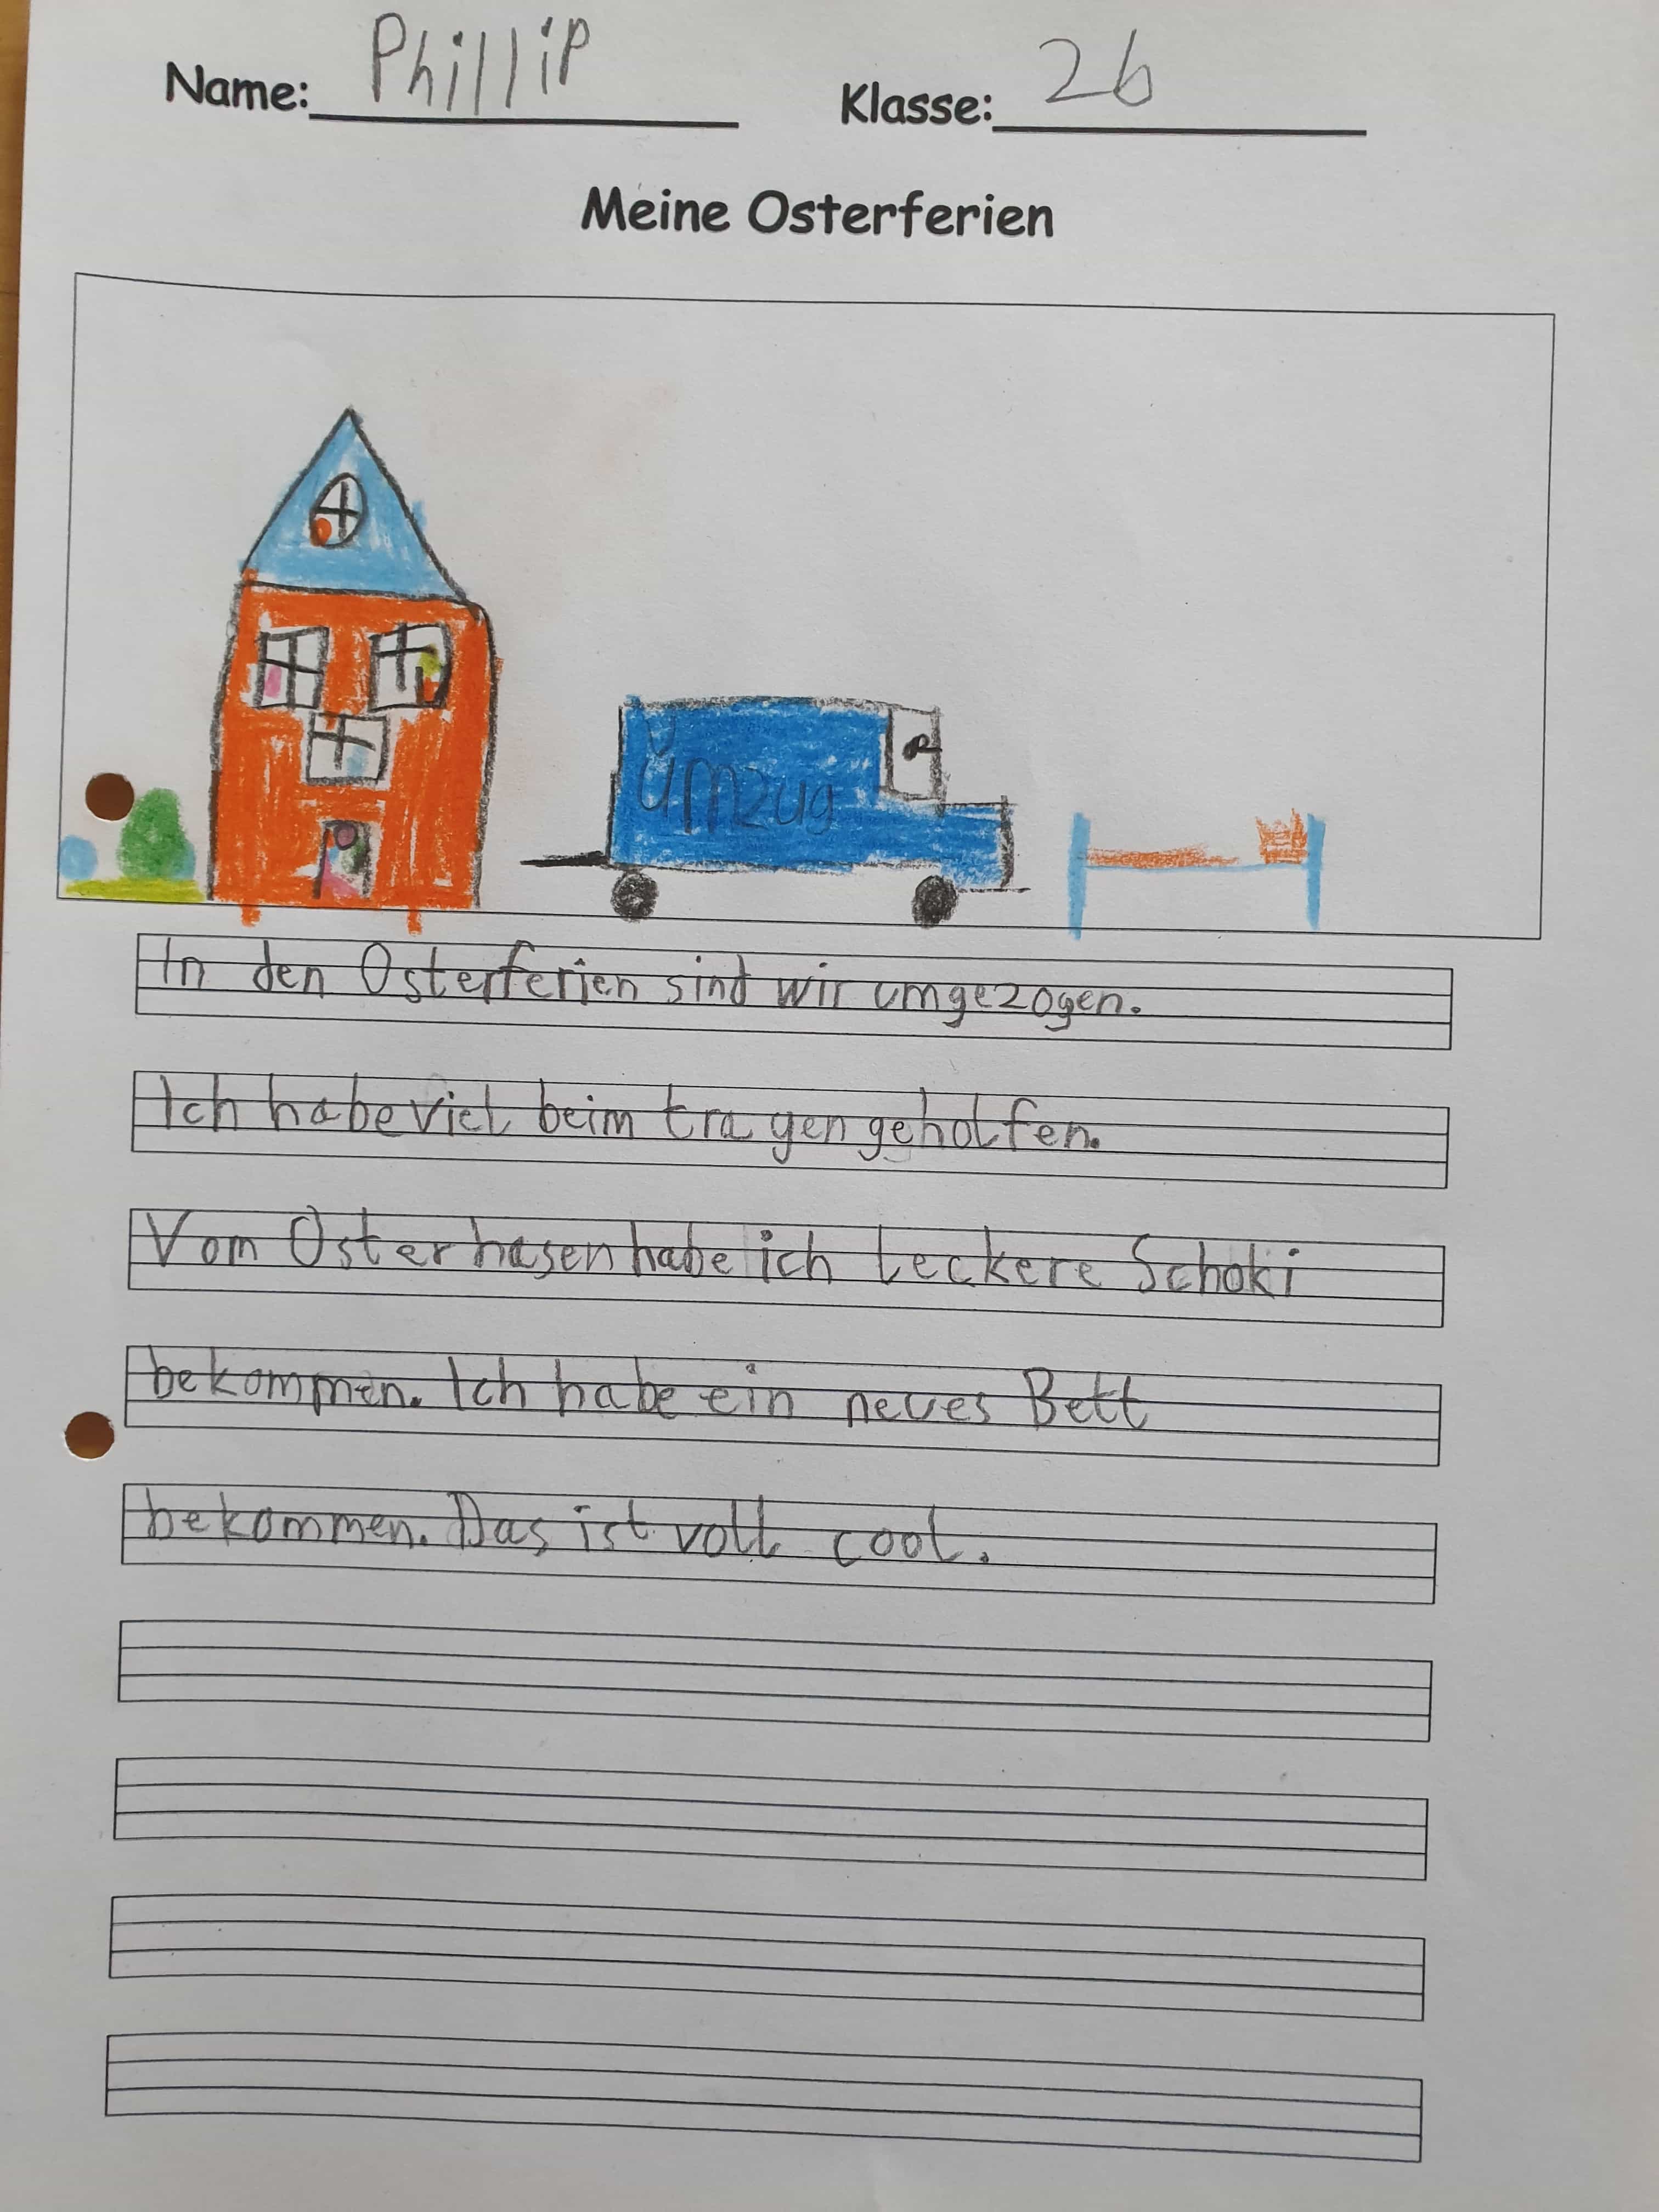 Name: Phillip Klasse: 2b
Meine Osterferien
Umzug
In den Osterferien sind wir umgezogen.
Ich habe viel beim tragen geholfen.
Vom Osterhasen habe ich leckere Schoki
bekommen. Ich habe ein neues Bett
bekommen. Das ist voll cool.